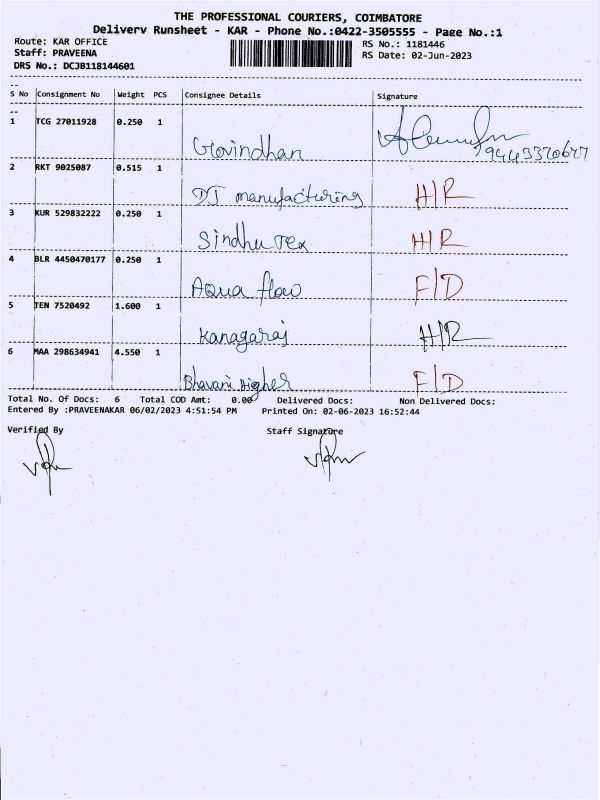 THE PROFESSIONAL COURIERS, COIMBATORE
Delivery Runsheet - KAR - Phone No.:0422-3505555 - Page No.:1
Route: KAR OFFICE
Staff: PRAVEENA
DRS No.: DCJB118144601
RS No.: 1181446
RS Date: 02-Jun-2023
S No Consignment No Weight PCS Consignee Details Signature
1 TCG 27011928 0.250 1
Govindhan 9443370677
2 RKT 9025087 0.515 1
DJ manufacturing H/R
3 KUR 529832222 0.250 1
Sindhu Tex H/R
4 BLR 4450470177 0.250 1
Aqua flow F/D
5 TEN 7520492 1.600 1
Kanagaraj H/R
6 MAA 298634941 4.550 1
Bhavani Higher F/D
Total No. Of Docs: 6 Total COD Amt: 0.00 Delivered Docs: Non Delivered Docs:
Entered By :PRAVEENAKAR 06/02/2023 4:51:54 PM Printed On: 02-06-2023 16:52:44
Verified By Staff Signature